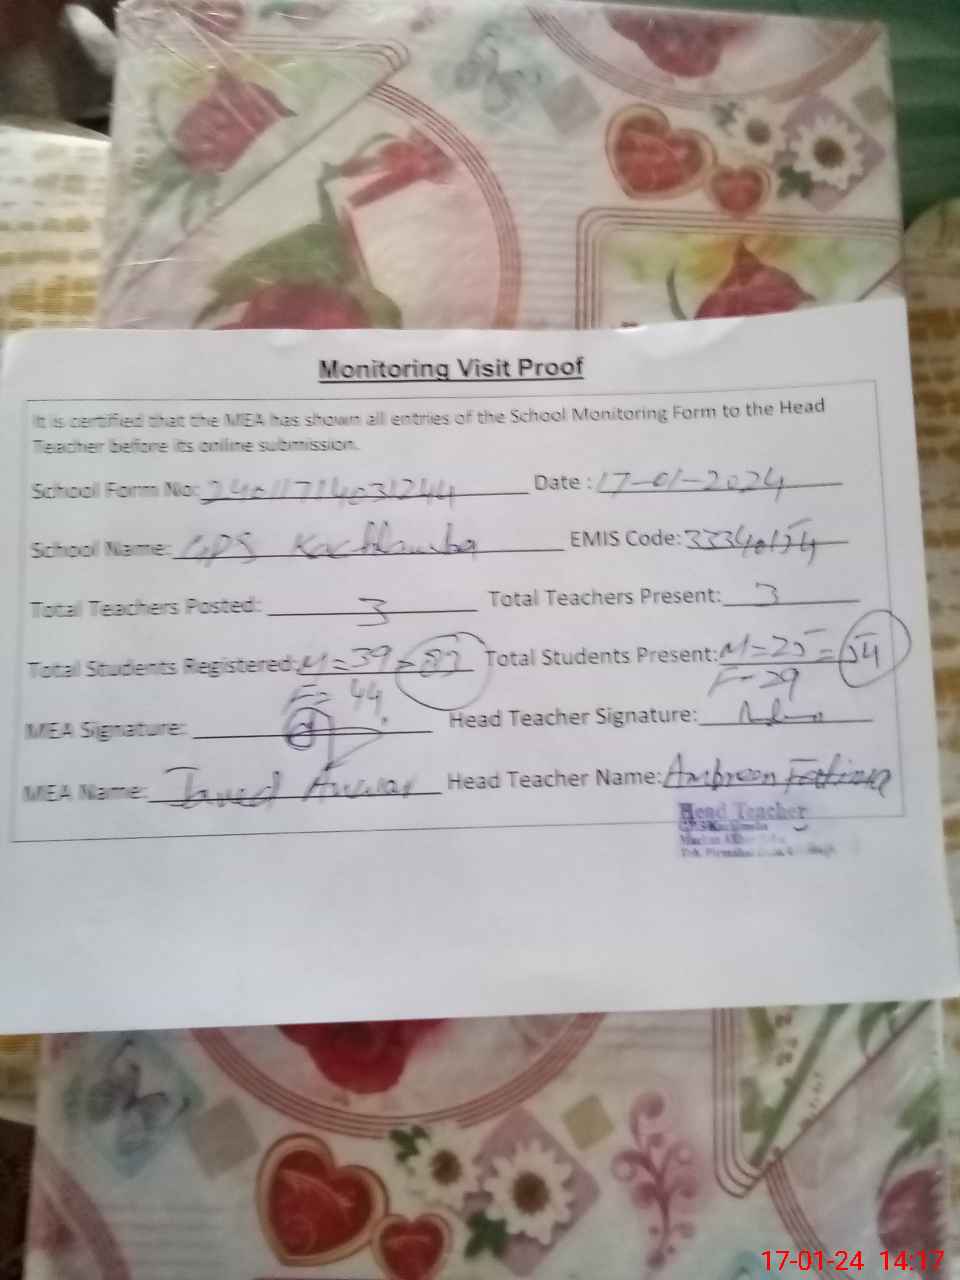 Monitoring Visit Proof
It is certified that the MEA has shown all entries of the School Monitoring Form to the Head
Teacher before its online submission.
School Form No: 24011714031244 Date : 17-01-2024
School Name: GPS EMIS Code: 33340154
Total Teachers Posted: 3 Total Teachers Present: 3
Total Students Registered: M=39=83 Total Students Present: M=25=54
F=44 F=29
MEA Signature: Head Teacher Signature:
MEA Name: Javed Anwar Head Teacher Name: Ambreen Fatima
Head Teacher
17-01-24 14:17